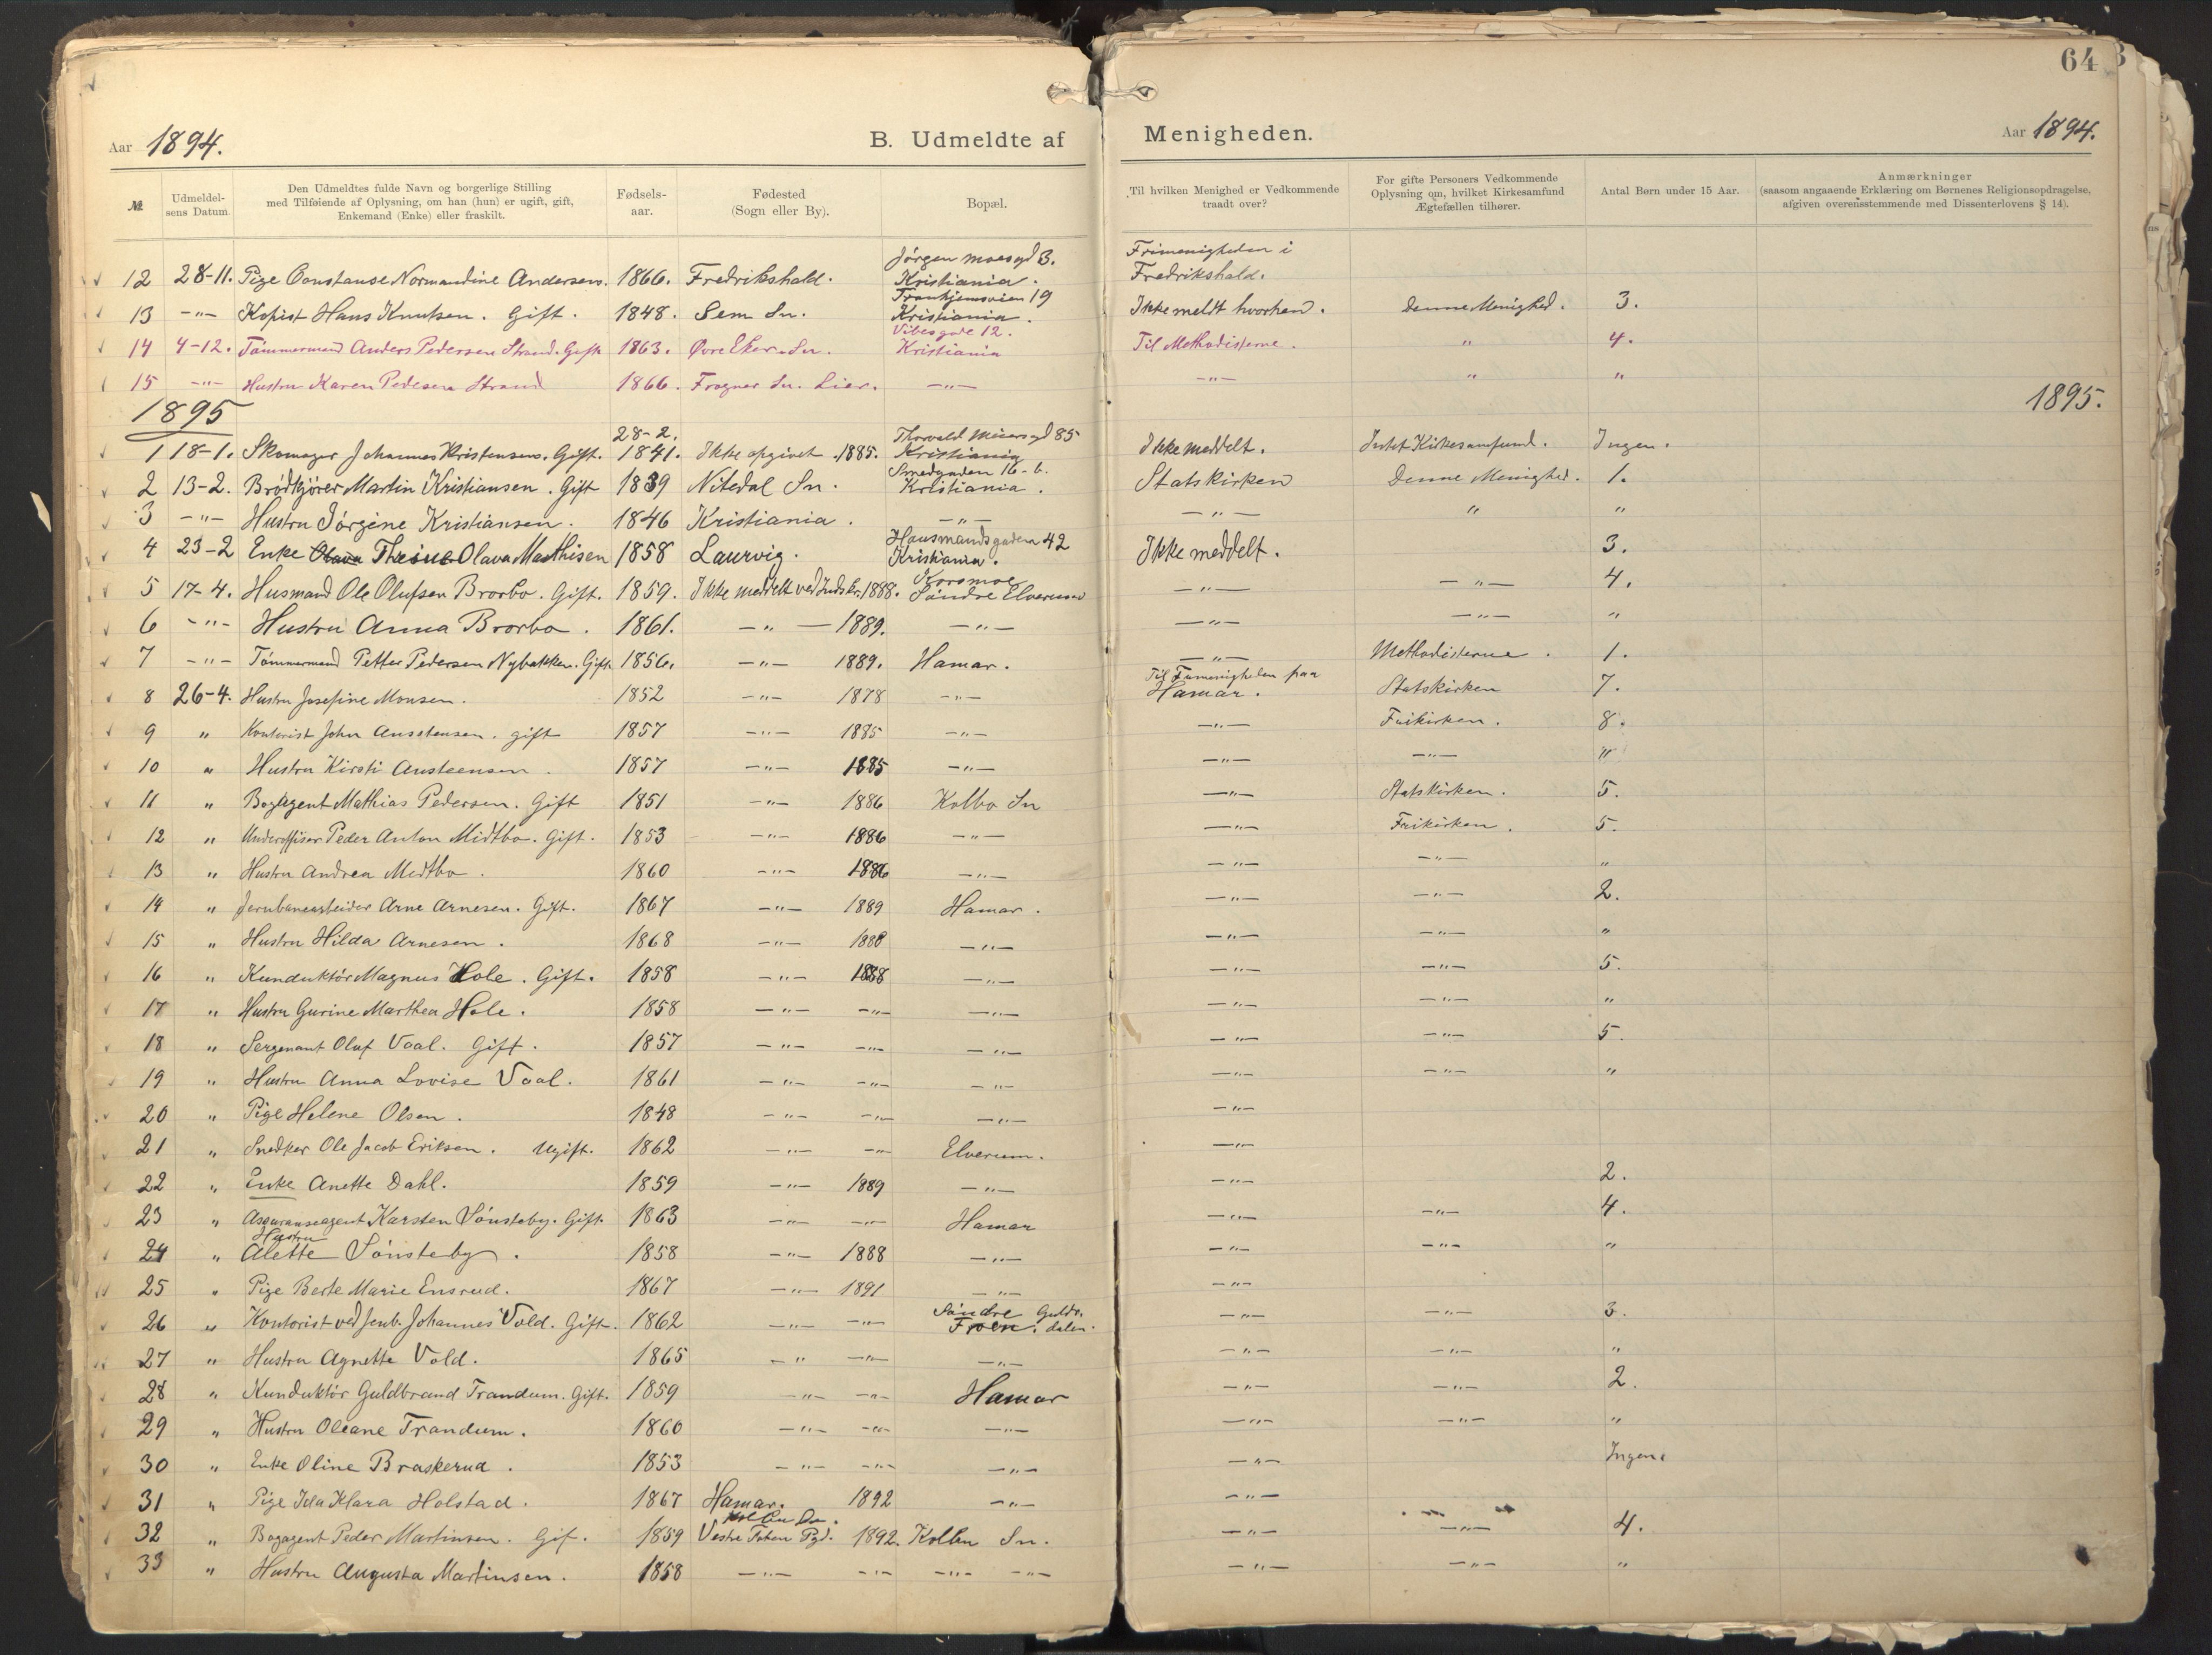 64
Aar 1894. B. Udmeldte af Menigheden. Aar 1894.
№ Udmeldelsens Datum. Den Udmeldtes fulde Navn og borgerlige Stilling med Tilføiende af Oplysning, om han (hun) er ugift, gift, Enkemand (Enke) eller fraskilt. Fødselsaar. Fødested (Sogn eller By). Bopæl. Til hvilken Menighed er Vedkommende traadt over? For gifte Personers Vedkommende Oplysning om, hvilket Kirkesamfund Ægtefællen tilhører. Antal Børn under 15 Aar. Anmærkninger (saasom angaaende Erklæring om Børnenes Religionsopdragelse, afgiven overensstemmende med Dissenterlovens § 14).
12 28-11. Pige Constanse Normandine Andersen. 1866. Fredrikshald. Jörgen moesgd 3. Kristiania. Frimenigheden i Fredrikshald.
13 -"- Kopist Hans Knutsen. Gift. 1848. Sem Sn. Trondhjemsveien 19 Kristiania. Ikke meldt hvorhen. Denne Menighed. 3.
14 4-12. Tömmermand Anders Pedersen Strand. Gift 1863. Øvre Eker Sn. Vibesgade 12. Kristiania Til Methodisterne. " 4.
15 -"- Hustru Karen Pedersen Strand 1866. Frogner Sn. Lier. -"- -"- " "
1895 1895.
1 18-1. Skomager Johannes Kristensen. Gift. 28-2. 1841. Ikke opgivet. 1885. Thorvald Meiersgd 85 Kristiania Ikke meddelt. Intet Kirkesamfund. Ingen.
2 13-2. Brödkjörer Martin Kristiansen. Gift 1839 Nitedal Sn. Smedgaden 16-b. Kristiania. Statskirken Denne Menighed. 1.
3 -"- Hustru Jörgine Kristiansen. 1846 Kristiania. -"- -"- " "
4 23-2 Enke Olava Thrine Olava Mathisen 1858 Laurvig. Hausmandsgaden 42 Kristiania. Ikke meddelt. 3.
5 17-4. Husmand Ole Olufsen Brorbo. Gift. 1859. Ikke meddelt ved Indskr. 1888. Korsmoe Söndre Elverum -"- -"- 4.
6 -"- Hustru Anna Brorbo. 1861. -"- 1889. -"- -"- -"- "
7 -"- Tömmermand Petter Pedersen Nybakken. Gift 1856. -"- 1889. Hamar. -"- Methodisterne. 1.
8 26-4. Hustru Josefine Monsen. 1852 -"- 1878 -"- Til Frimenigheden paa Hamar. Statskirken 7.
9 " Kontorist John Austensen. gift 1857 -"- 1885 -"- -"- Frikirken. 8.
10 " Hustru Kirsti Austeensen. 1857 -"- 1885 -"- -"- -"- "
11 " Bogagent Mathias Pedersen. Gift 1851 -"- 1886 Kolbo Sn -"- Statskirken. 5.
12 " Underoffiser Peder Anton Midtbo. Gift. 1853 -"- 1886 -"- -"- Frikirken. 5.
13 " Hustru Andrea Medtbo. 1860 -"- 1886 -"- -"- -"- "
14 " Jernbanearbeider Arne Arnesen. Gift. 1867 -"- 1889 Hamar. -"- -"- 2.
15 " Hustru Hilda Arnesen. 1868 -"- 1888 -"- -"- -"- "
16 " Kunduktör Magnus Hole. Gift. 1858 -"- 1888 -"- -"- -"- 5.
17 " Hustru Gurine Marthea Hole. 1858 -"- -"- -"- -"- -"- "
18 " Sergenant Oluf Vaal. Gift. 1857 -"- -"- -"- -"- -"- 5.
19 " Hustru Anna Lovise Vaal. 1861 -"- -"- -"- -"- -"- "
20 " Pige Helene Olsen. 1848 -"- -"- -"- -"-
21 " Snedker Ole Jacob Eriksen. Ugift. 1862 -"- -"- Elverum. -"-
22 " Enke Anette Dahl. 1859 -"- 1889 -"- -"- 2.
23 " Asguranseagent Karsten Sönsteby. Gift. 1863 -"- -"- Hamar -"- -"- 4.
24 " Hustru Alette Sönsteby. 1858 -"- 1888 -"- -"- -"- "
25 " Pige Berte Marie Ensrud. 1867 -"- 1891 -"- -"-
26 " Kontorist ved Jernb. Johannes Vold. Gift. 1862 -"- -"- Söndre Guldr. Froen. dalen. -"- -"- 3.
27 " Hustru Agnette Vold. 1865 -"- -"- -"- -"- -"- "
28 " Kunduktör Guldbrand Trandum. Gift. 1859 -"- -"- Hamar -"- -"- 2.
29 " Hustru Oleane Trandum. 1860 -"- -"- -"- -"- -"- "
30 " Enke Oline Braskerud. 1853 -"- -"- -"- -"- Ingen.
31 " Pige Ida Klara Holstad. 1867 Hamar. 1892 -"- -"-
32 " Bogagent Peder Martinsen. Gif. 1859 Kolbu Sn. Vestre Toten Pgd. 1892. Kolbu Sn. -"- -"- 4.
33 " Hustru Augusta Martinsen. 1858 -"- -"- -"- -"- -"- -"- "